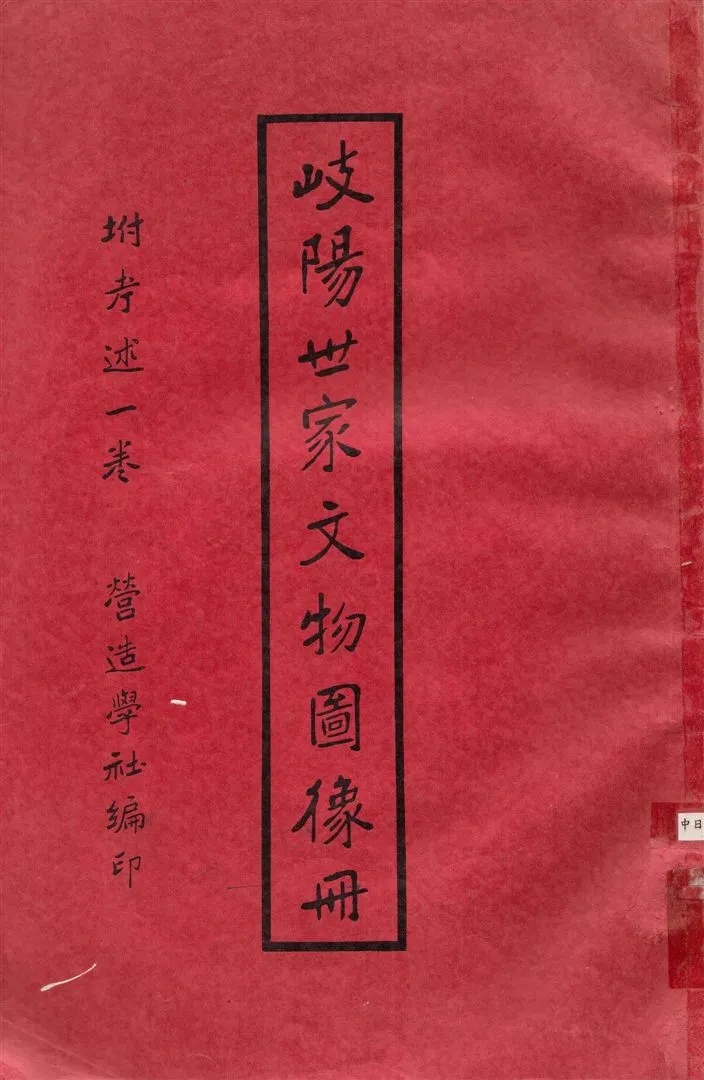 中日
岐陽世家文物圖像冊
坿考述一卷 營造學社編印